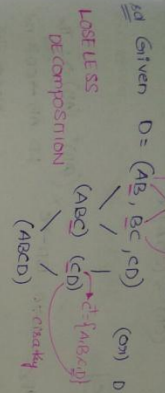 Sol Given D = (AB, BC, CD) (OR) D
LOSELESS
DECOMPOSITION
(ABC) (CD) C⁺={A,B,C,D}
(ABCD)